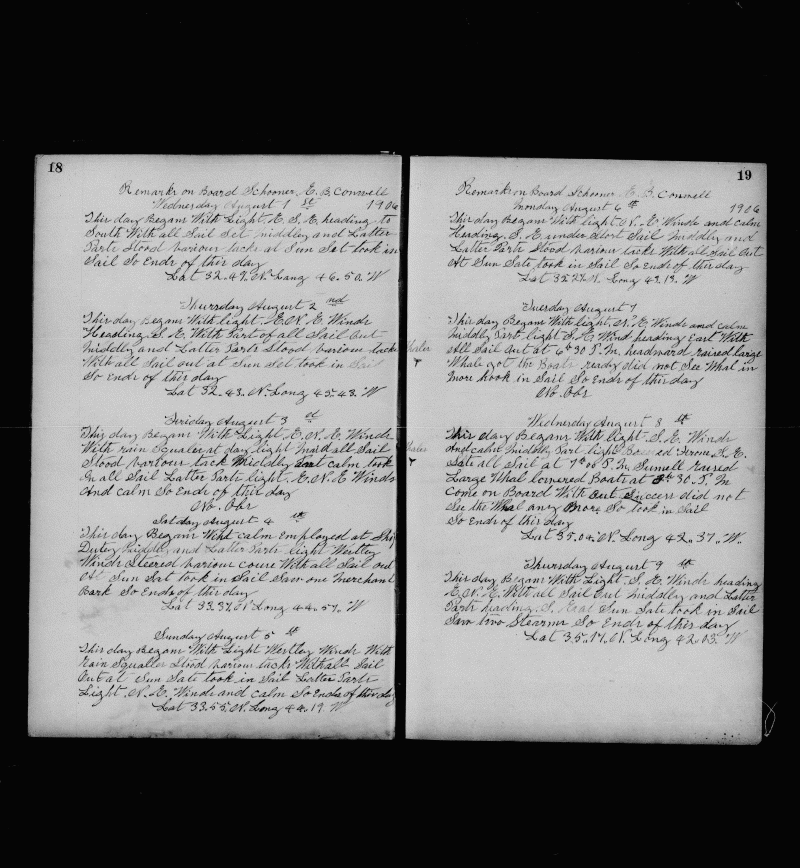 18
Remarks on Board Schooner E. B. Conwell
Wednesday August 1 st 1906
This day Began With Light. E. S. E. heading to
South With all Sail Set middley and Latter
Parts Stood variour tacks at Sun Set took in
Sail So Ends of this day
Lat 32.47. N. Long 46.50. W
Thursday August 2 nd
This day Began With light. E. N. E. Winds
Heading S. E. With Part of all Sail Out
middley and Latter Parts Stood variour tacks
With all Sail out at Sun Set took in Sail
So Ends of this day
Lat 32.43. N. Long 45.43. W
Friday August 3 rd
This day Began With Light E. N. E. Winds
With rain Squales at day light made all Sail
Stood variour tack Middley Part calm took
In all Sail Latter Parts light. E. N. E Winds
And calm So Ends of this day
No. Obs
Satday August 4 th
This day Began With calm Employed at Ship
Dutey Middley and Latter Parts light Westley
Winds Steered variour course With all Sail out
At Sun Set took in Sail Saw one Merchant
Bark So Ends of this day
Lat 33.37. N Long 44.57. W
Sunday August 5 th
This day Began With Light Westley Winds With
Rain Squalles Stood variour tacks With all Sail
Out at Sun Sate took in Sail Latter Parts
Light. N. E. Winds and calm So Ends of this day
Lat 33.55. N. Long 44.19. W
19
Remarks on Board Schooner E. B. Conwell
Monday August 6 th 1906
This day Began With light. N. E. Winds and calm
Heading. S. E. under Short Sail middley and
Latter Parts Stood variour tacks With all Sail Out
At Sun Sate took in Sail So Ends of this day
Long 43.13. W
Tuesday August 7
This day Began With light. N. E. Winds and calm
Middley Part light S. E. Wind heading East With
Whales
All Sail Out at 6h 30 P. M. headward raised large
Whale got the Boats ready did not See Whal in
more hook in Sail So Ends of this day
No. Obs
Wednesday August 8 th
This day Began With light. S. E. Winds
And calm middley Part light S. E.
Whales
Sate all Sail at P. M. raised
Large Whal lowered Boats at 30. P. M
Come on Board With Out Success did not
See the Whal any More So took in Sail
So Ends of this day
Lat 35.04. N. Long 42.37. W.
Thursday August 9 th
This day Began With Light. S. E. Winds heading
E. N. E. With all Sail Out middley and Latter
Parts heading. S. East Sun Sate took in Sail
Saw two Stearms So Ends of this day
Lat 35.17. N. Long 42.03. W